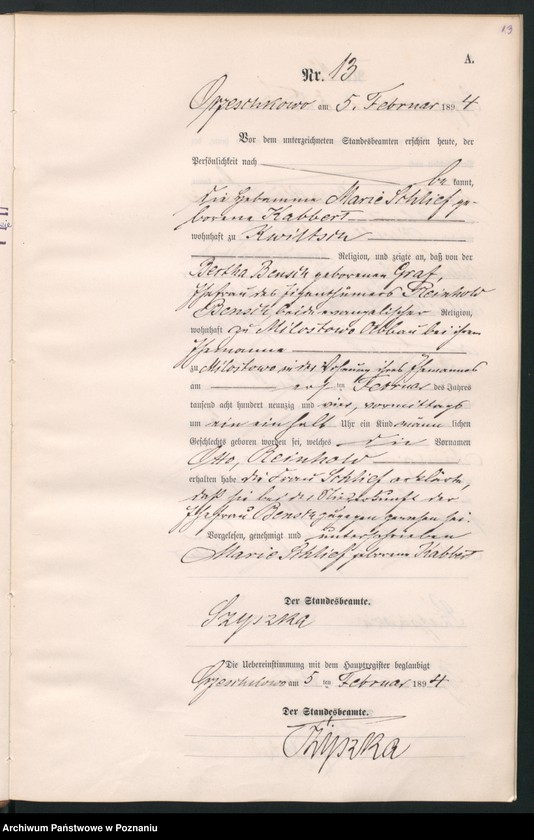 19
A.
Nr. 13
Orzeschkowo am 5. Februar 1894
Vor dem unterzeichneten Standesbeamten erschien heute, der
Persönlichkeit nach
be kannt,
die Hebamme Marie Schlief ge-
borene Kabbert
wohnhaft zu Kwiltsch
Religion, und zeigte an, daß von der
Bertha Bensch geborenen Graf,
Ehefrau des Eigenthümers Reinhold
Bensch beide evangelischer Religion,
wohnhaft zu Milostowo Abbau bei ihrem
Ehemanne
zu Milostowo in der Wohnung ihres Ehemannes
am ten Februar des Jahres
tausend acht hundert neunzig und vier, vormittags
um ein einhalb Uhr ein Kind männ lichen
Geschlechts geboren worden sei, welches die Vornamen
Otto, Reinhold
erhalten habe die Frau Schlief erklärte,
daß sie bei der Niederkunft der
Ehefrau Bensch zugegen gewesen sei.
Vorgelesen, genehmigt und unterschrieben
Marie Schlief geborene Kabbert
Der Standesbeamte.
Szyszka
Die Uebereinstimmung mit dem Hauptregister beglaubigt
Orzeschkowo am 5 ten Februar 1894
Der Standesbeamte.
Szyszka
Archiwum Państwowe w Poznaniu